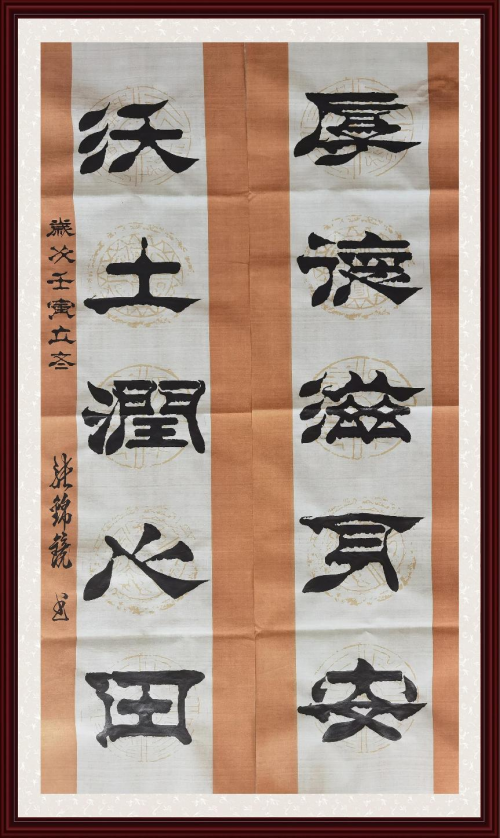 厚德滋身安
沃土潤心田
歲次壬寅立冬
錦鏡 书